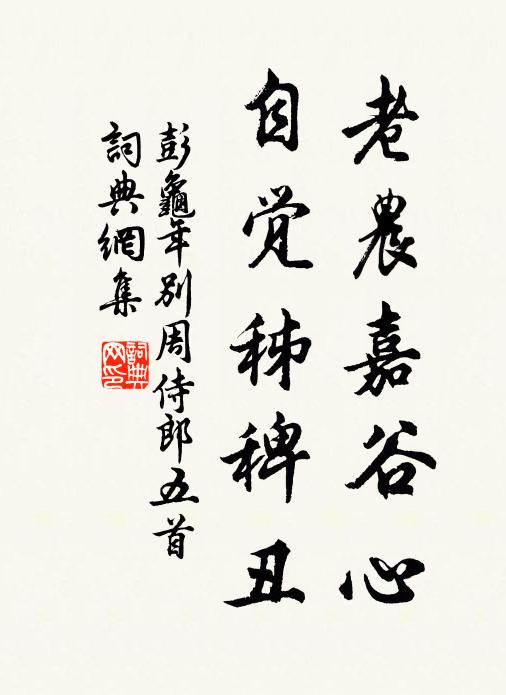 老農嘉谷心
自觉稊稗丑
彭龜年别周侍郎五首
詞典網集
詞典
网印